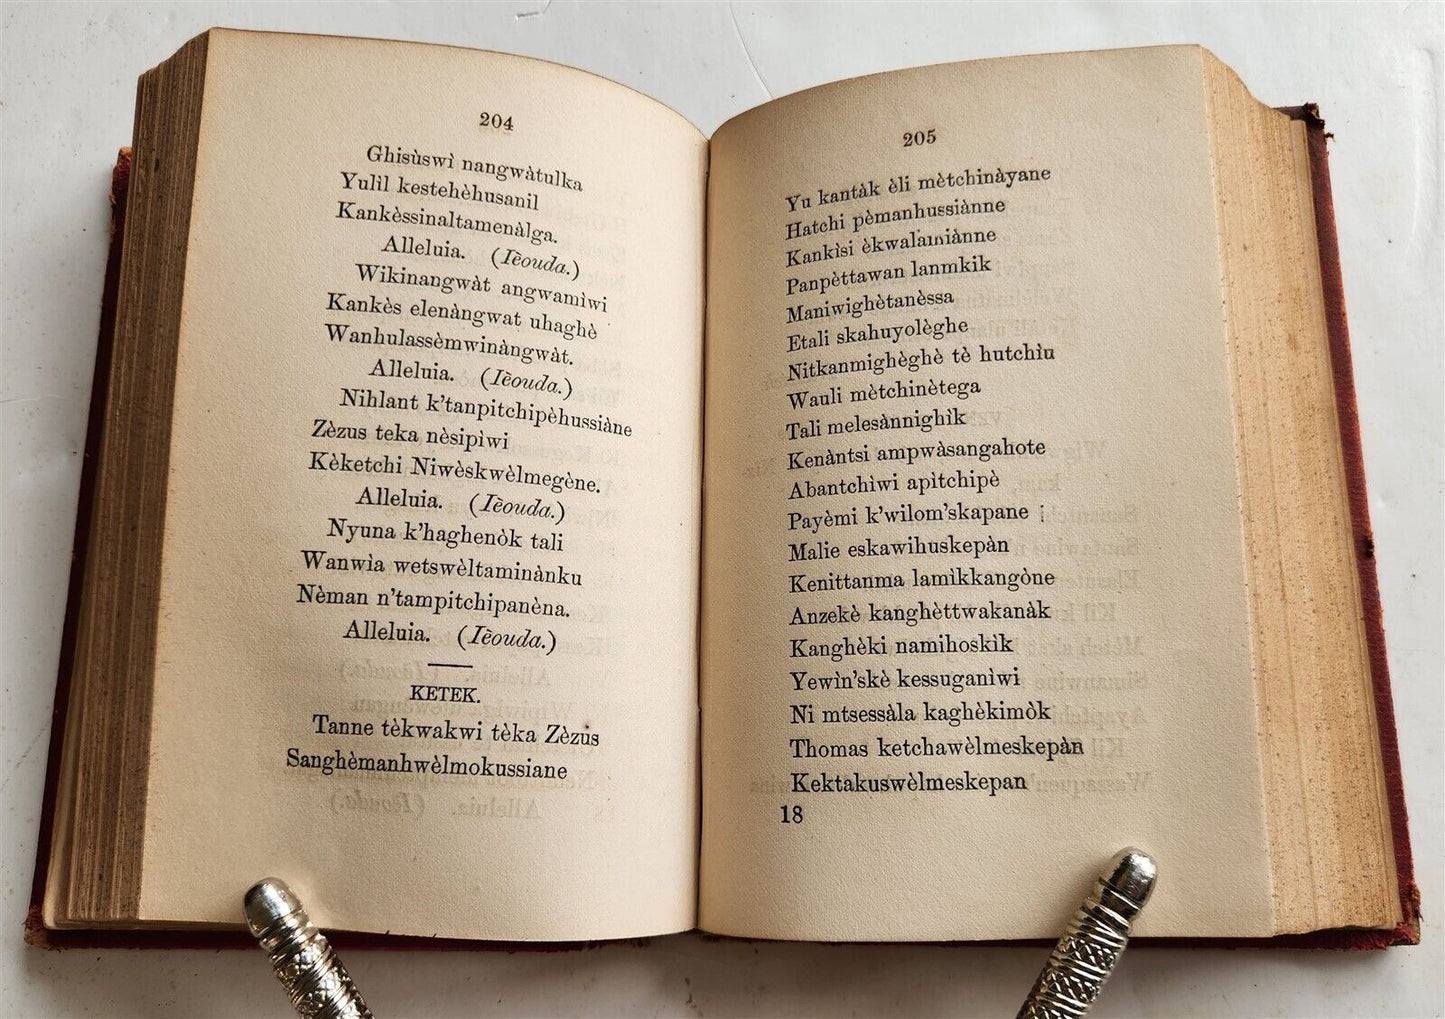 204
Ghisùswì nangwàtulka
Yulìl kestehèhusanil
Kankèssinaltamenàlga.
Alleluia. (Ièouda.)
Wikinangwàt angwamìwi
Kankès elenàngwat uhaghè
Wanhulassèmwinàngwàt.
Alleluia. (Ièouda.)
Nihlant k'tanpitchipèhussiàne
Zèzus teka nèsipìwi
Kèketchi Niwèskwèlmegène.
Alleluia. (Ièouda.)
Nyuna k'haghenòk tali
Wanwìa wetswèltaminànku
Nèman n'tampitchipanèna.
Alleluia. (Ièouda.)
KETEK.
Tanne tèkwakwi tèka Zèzus
Sanghèmanhwèlmokussiane
205
Yu kantàk èli mètchinàyane
Hatchi pèmanhussiànne
Kankìsi èkwalamiànne
Panpèttawan lanmkik
Maniwighètanèssa
Etali skahuyolèghe
Nitkanmighèghè tè hutchìu
Wauli mètchinètega
Tali melesànnighìk
Kenàntsi ampwàsangahote
Abantchìwi apìtchipè
Payèmi k'wilom'skapane ;
Malie eskawihuskepàn
Kenittanma lamìkkangòne
Anzekè kanghèttwakanàk
Kanghèki namihoskìk
Yewìn'skè kessuganìwi
Ni mtsessàla kaghèkimòk
Thomas ketchawèlmeskepàn
Kektakuswèlmeskepan
18